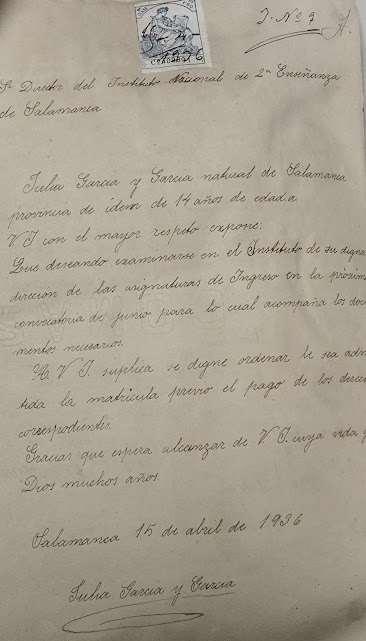 J. Nº 9
1936
Sr Director del Instituto Nacional de 2ª Enseñanza
de Salamanca
Julia Garcia y Garcia natural de Salamanca
provincia de idem de 14 años de edad a
V I con el mayor respeto expone:
Que deseando examinarse en el Instituto de su digna
direccion de las asignaturas de Ingreso en la próxim
convocatoria de junio para lo cual acompaña los doc
mentos necesarios.
A V I. suplica se digne ordenar le sea adm
tida la matricula previo el pago de los derec
correspodientes.
Gracias que espera alcanzar de V I. cuya vida g
Dios muchos años.
Salamanca 15 de abril de 1936
Julia Garcia y Garcia